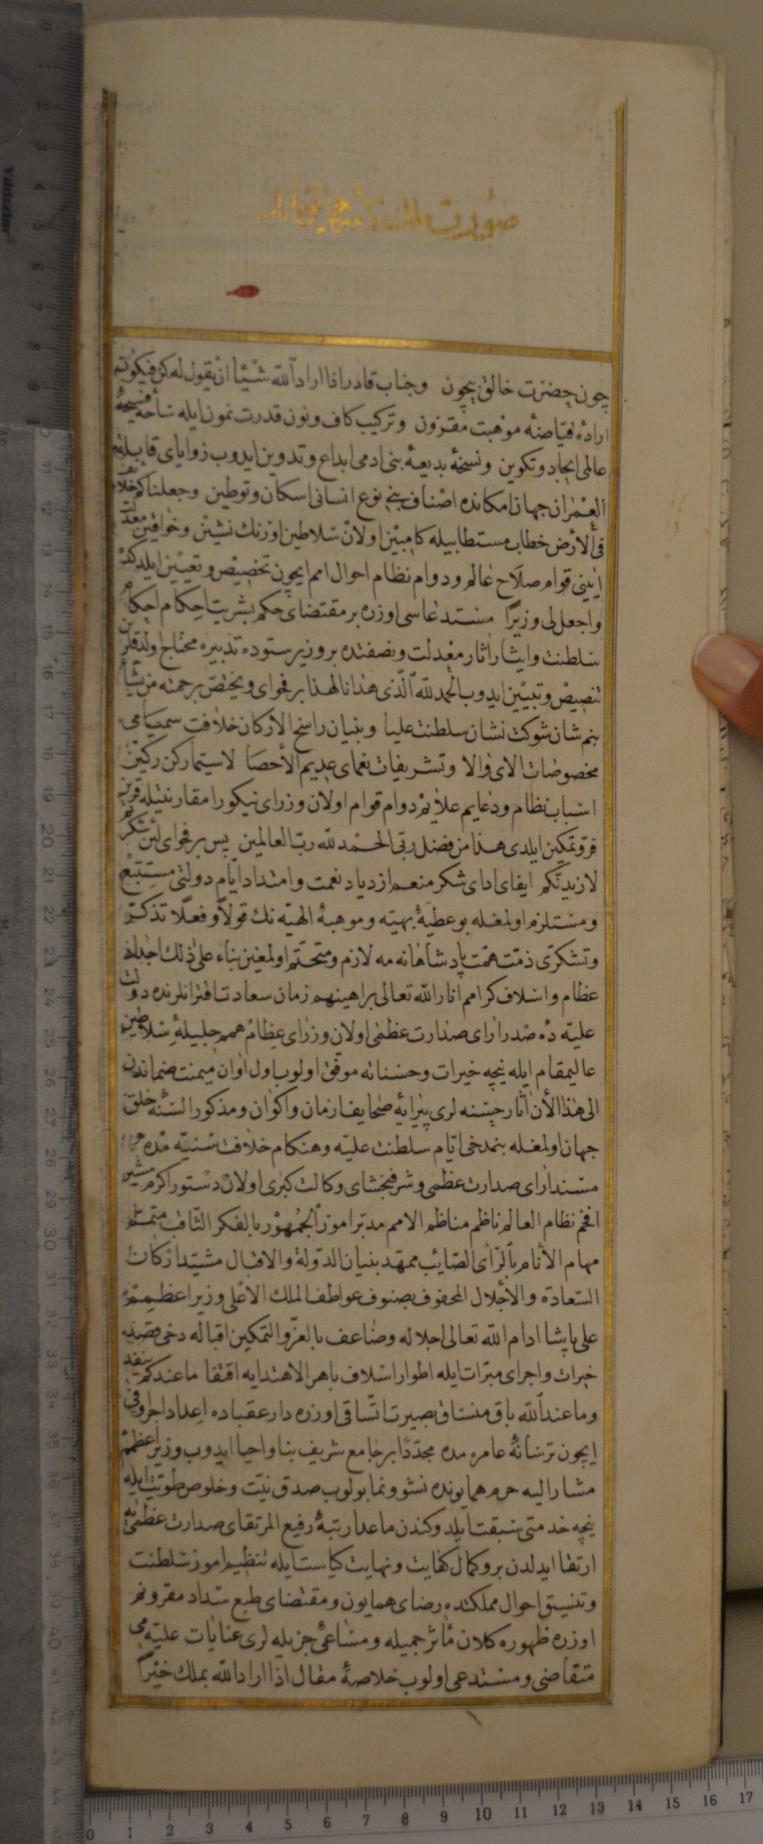 صورت ملكنامهٔ همایون
چون حضرت خالق بیچون وجناب قادر اذا اراد الله شیئا ان یقول له كن فیكون
اراده فیاضنه موهبت مقرون وتركیب كاف ونون قدرت نمون ایله ساحهٔ فسیحهٔ
عالمی ایجاد وتكوین ونسخهٔ بدیعهٔ بنی ادمی ابداع وتدوین ایدوب زوایای قابلة
العمران جهان امكانده اصناف بنی نوع انسانی اسكان وتوطین وجعلناكم خلائف
فی الارض خطاب مستطابیله كامبین اولان سلاطین اورنك نشین وخواقین معدلت
ایینی قوام صلاح عالم ودوام نظام احوال امم ایچون تخصیص وتعیین ایلدكده
واجعل لی وزیرا مستدعاسی اوزره بر مقتضای حكم بشریت احكام احكام
سلطنت وایثار اثار معدلت ونصفتده بر وزیر ستوده تدبیره محتاج اولدقلرین
تنصیص وتبیین ایدوب الحمد لله الذی هدانا لهذا بر فحوای ویختص برحمته من یشاء
بنم شان شوكت نشان سلطنت علیا وبنیان راسخ الاركان خلافت سمیامی
مخصوصات الای والا وتشریفات نعمای عدیم الاحصا لاسیما ركن ركین
اسباب نظام ودعایم علایم دوام قوام اولان وزرای نیكورا مقارنتیله قرین
فر وتمكین ایلدی هذا من فضل ربی الحمد لله رب العالمین پس بر فحوای لئن شكرتم
لازیدنكم ایفای ادای شكر منعم ازدیاد نعمت وامتداد ایام دولتی مستتبع
ومستلزم اولمغله بو عطیهٔ بهیه وموهبهٔ الهیه نك قولا وفعلا تذكر
وتشكری ذمت همت پادشاهانه مه لازم ومتحتم اولمغین بناء علی ذلك اجداد
عظام واسلاف كرامم انار الله تعالی براهینهم زمان سعادت اقترانلرنده دولت
علیه ده صدر ارای صدارت عظمی اولان وزرای عظام همم جلیلهٔ سلاطین
عالیمقام ایله نیچه خیرات وحسناته موفق اولوب اول اوان میمنت ضماندن
الی هذا الآن آثار حسنه لری پیرایهٔ صحایف ازمان واكوان ومذكور السنهٔ خلق
جهان اولمغله بنم دخی ایام سلطنت علیه وهنكام خلافت سنیه مده
مسند ارای صدارت عظمی وشرفبخشای وكالت كبری اولان دستور اكرم مشیر
افخم نظام العالم ناظم مناظم الامم مدبر امور الجمهور بالفكر الثاقب متمم
مهام الانام بالرای الصایب ممهد بنیان الدولة والاقبال مشید اركان
السعادة والاجلال المحفوف بصنوف عواطف الملك الاعلی وزیر اعظمم
علی پاشا ادام الله تعالی اجلاله وضاعف بالعز والتمكین اقباله دخی قصد
خیرات واجرای مبرات ایله اطوار اسلاف باهر الاهتدایه اقتفا ما عندكم ینفد
وما عند الله باق منساق بصیرت اتساقی اوزره دار عقباده اعداد اجر وافی
ایچون ترسانهٔ عامره مده مجددا بر جامع شریف بنا واحیا ایدوب وزیر اعظمم
مشار الیه حرم همایونده نشو ونما بولوب صدق نیت وخلوص طویت ایله
نیچه خدمتی سبقت ایلدوكندن ماعدا رتبهٔ رفیع المرتقای صدارت عظمی یه
ارتقا ایدلدن برو كمال كفایت ونهایت كیاست ایله تنظیم امور سلطنت
وتنسیق احوال مملكتده رضای همایون ومقتضای طبع سداد مقرونم
اوزره ظهوره كلان مآثر جمیله ومساعئ جزیله لری عنایات علیه می
متقاضی ومستدعی اولوب خلاصهٔ مقال اذا اراد الله بملك خیرا